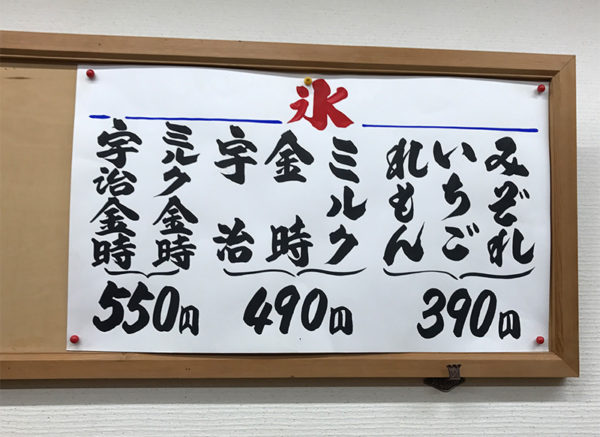 氷
みぞれ
いちご
れもん
390円
ミルク
金時
宇治
490円
ミルク金時
宇治金時
550円